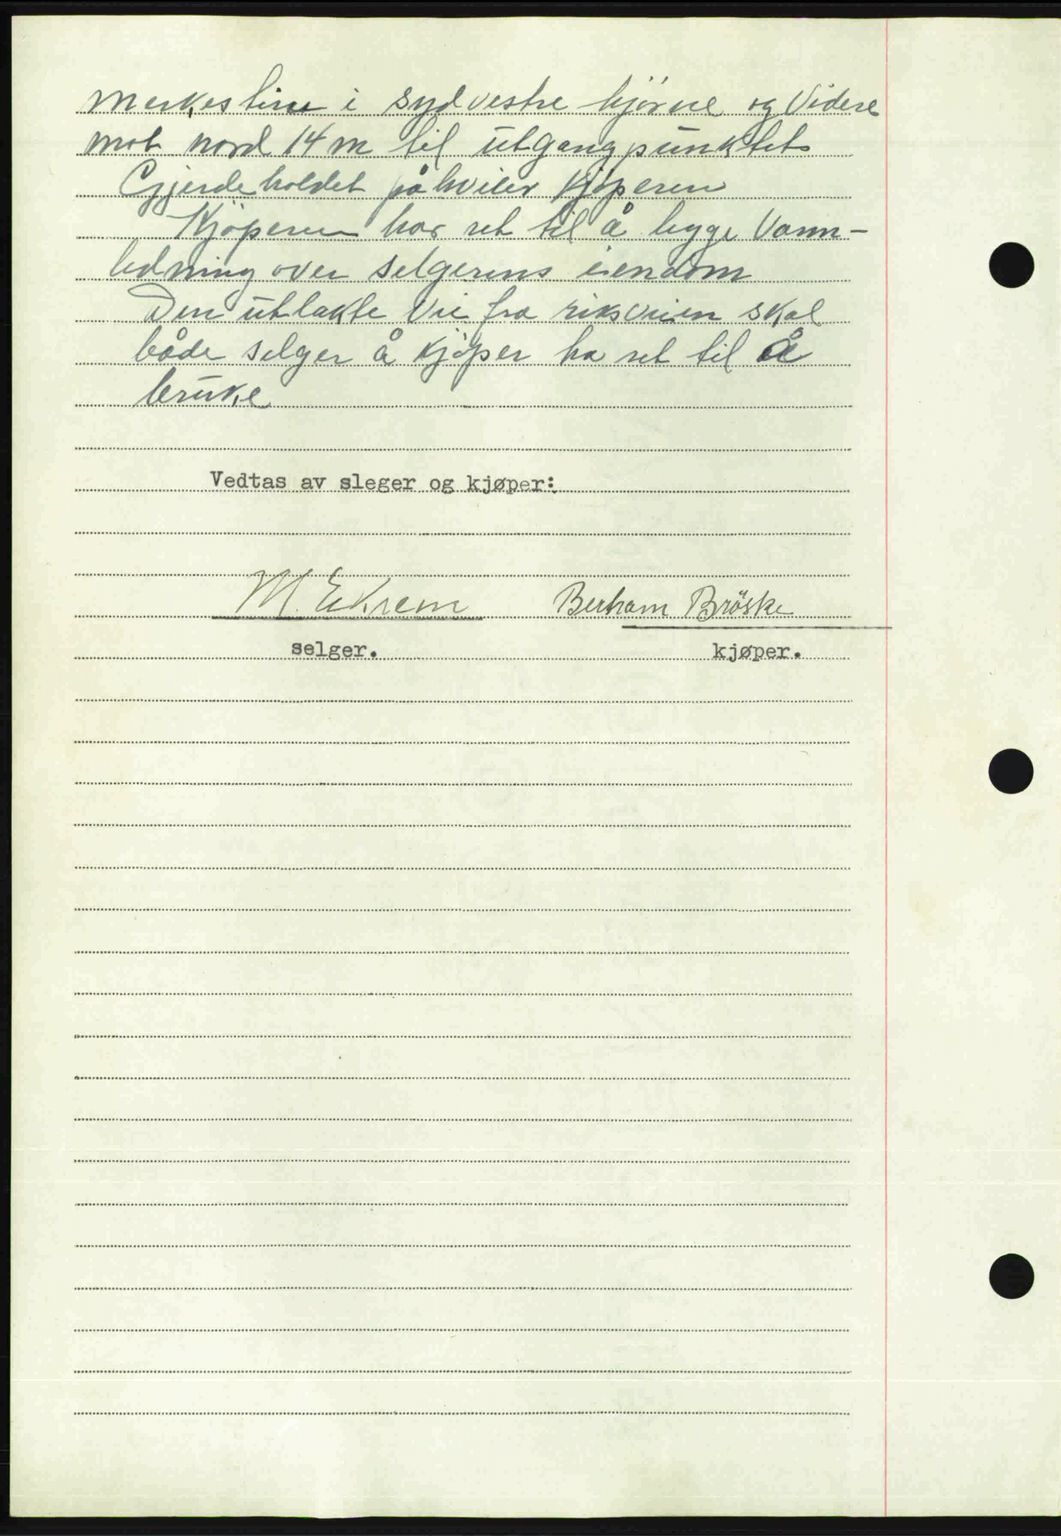 merkestine i sydvestre hjörne og Videre
mot nord 14 m til utgangpunktets
Gjerdeholdet påhviler Kjöperen
Kjöperen har ret til å legge Vann-
ledning over selgerens eiendom
Den utlakte Vei fra riksveien skal
både selger å Kjöper ha ret til å
bruke
Vedtas av sleger og kjøper:
M. Ekrem Berham Bröske
selger. kjøper.